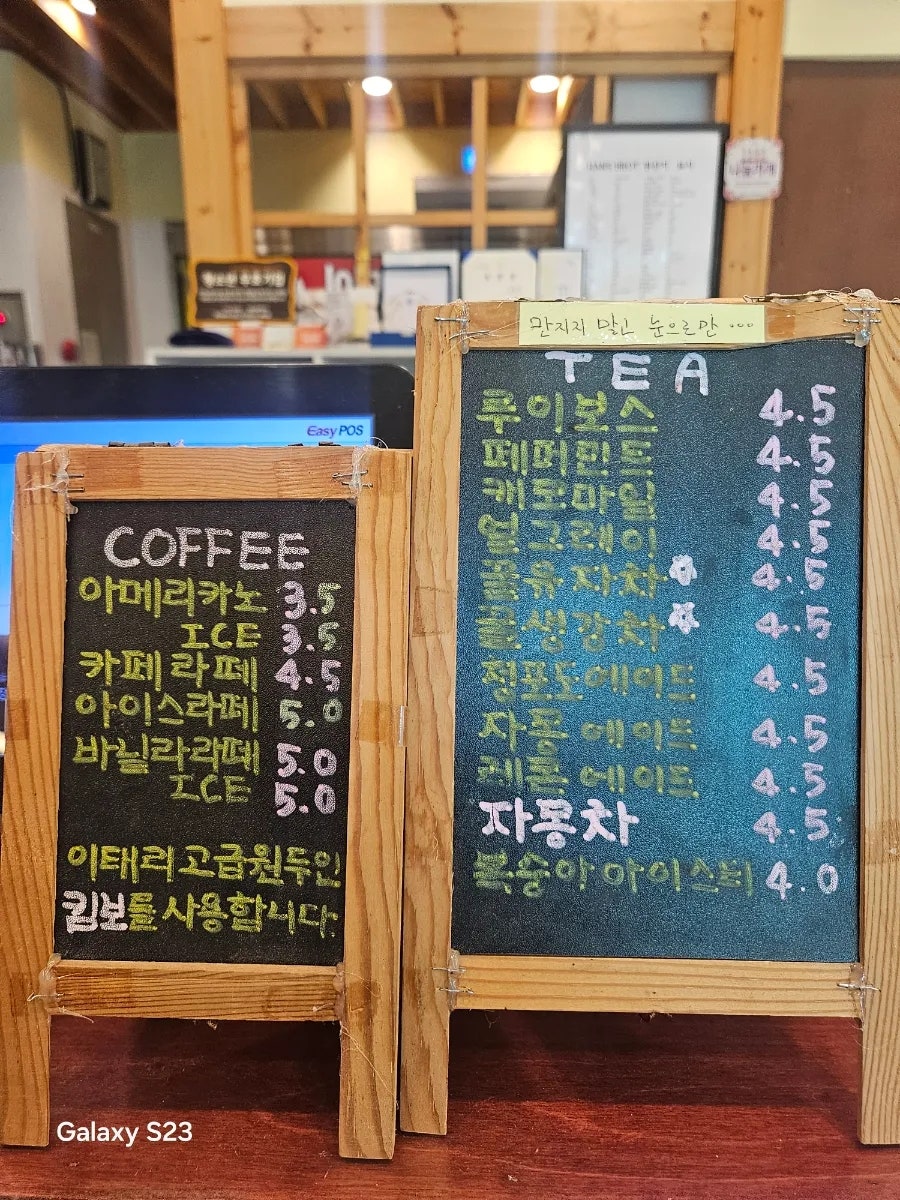 만지지 말고 눈으로만 ...
EasyPOS
COFFEE
아메리카노 3.5
ICE 3.5
카페라떼 4.5
아이스라떼 5.0
바닐라라떼 5.0
ICE 5.0
이태리고급원두인
킴보를사용합니다.
TEA
루이보스 4.5
페퍼민트 4.5
캐모마일 4.5
얼그레이 4.5
꿀유자차 4.5
꿀생강차 4.5
청포도에이드 4.5
자몽에이드 4.5
레몬에이드 4.5
자몽차 4.5
복숭아아이스티 4.0
Galaxy S23